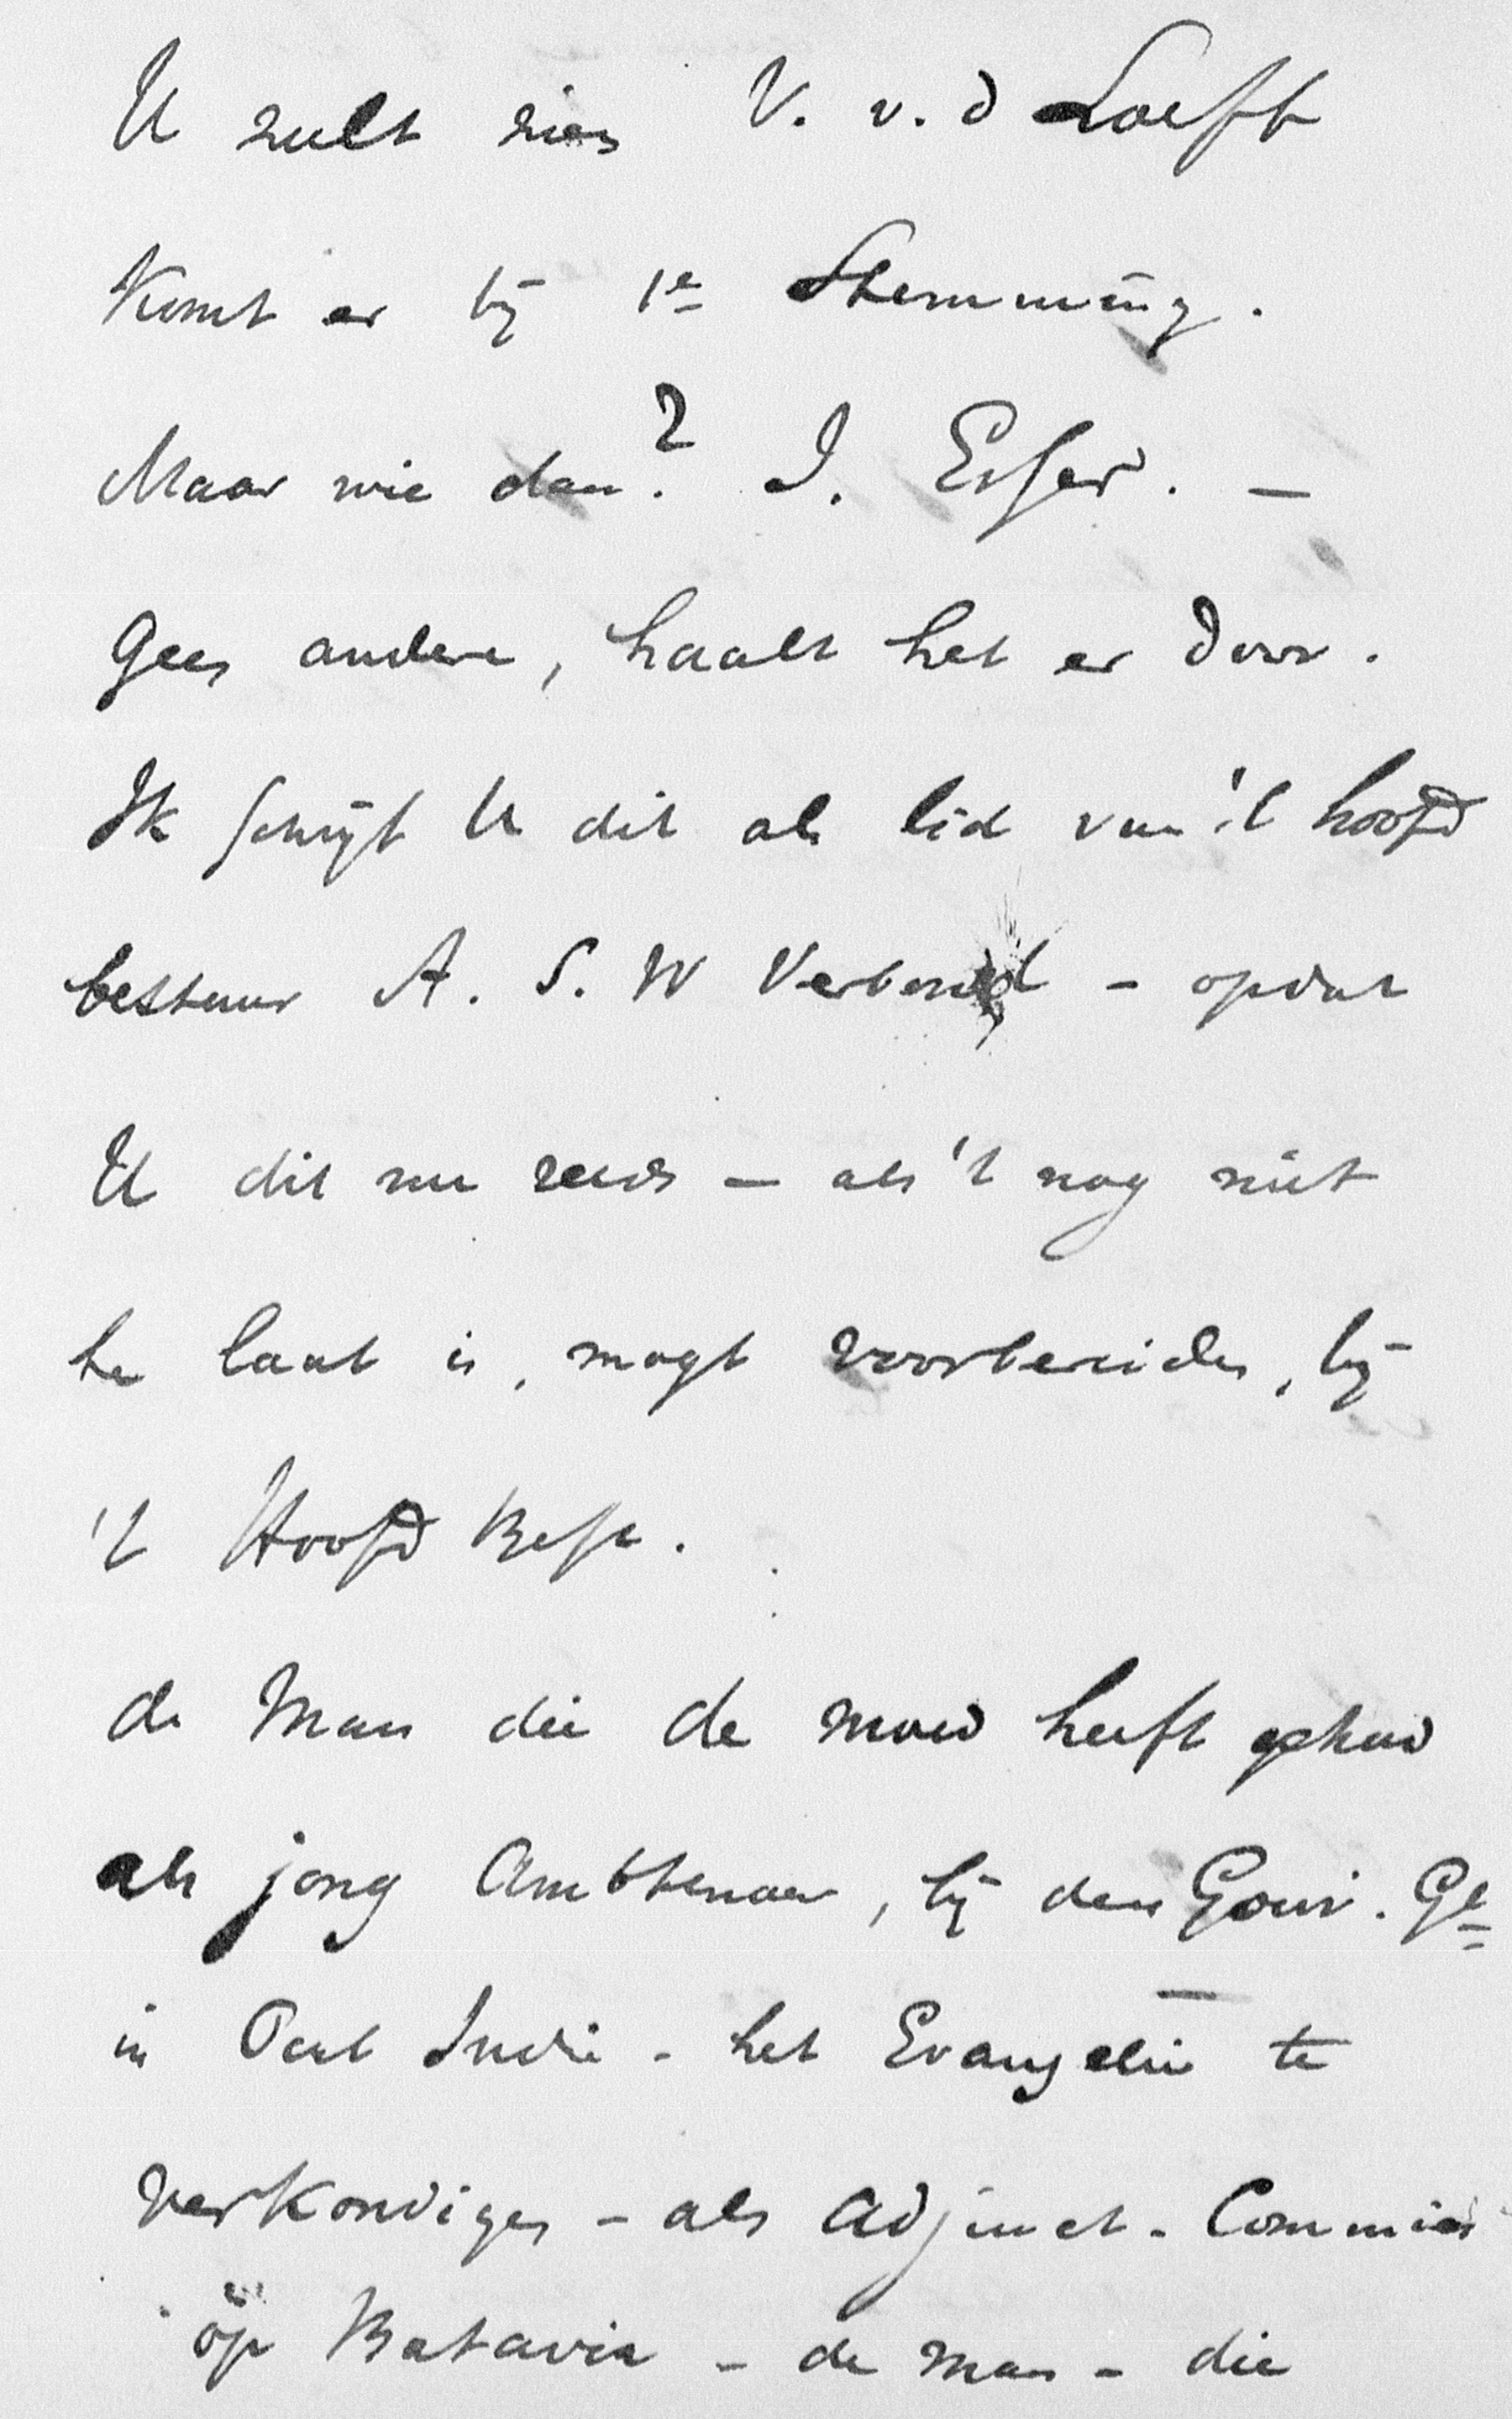 U zult zien V. v. d Loeff
Komt er bij 1e Stemming.
Maar wie dan? I. Esser. —
Geen andere, haalt het er door.
Ik schrijf U dit als lid van 't hoofd
bestuur A. S. W Verbond - opdat
U dit nu reeds — als 't nog niet
te laat is, mogt voorbereiden, bij
't Hoofd Best.
de Man die de moed heeft gehad
als jong Ambtenaar, bij den Gouv. Gl
in Oost Indië - het Evangelie te
verkondigen - als Adjunct - Commies
op Batavia - de man - die